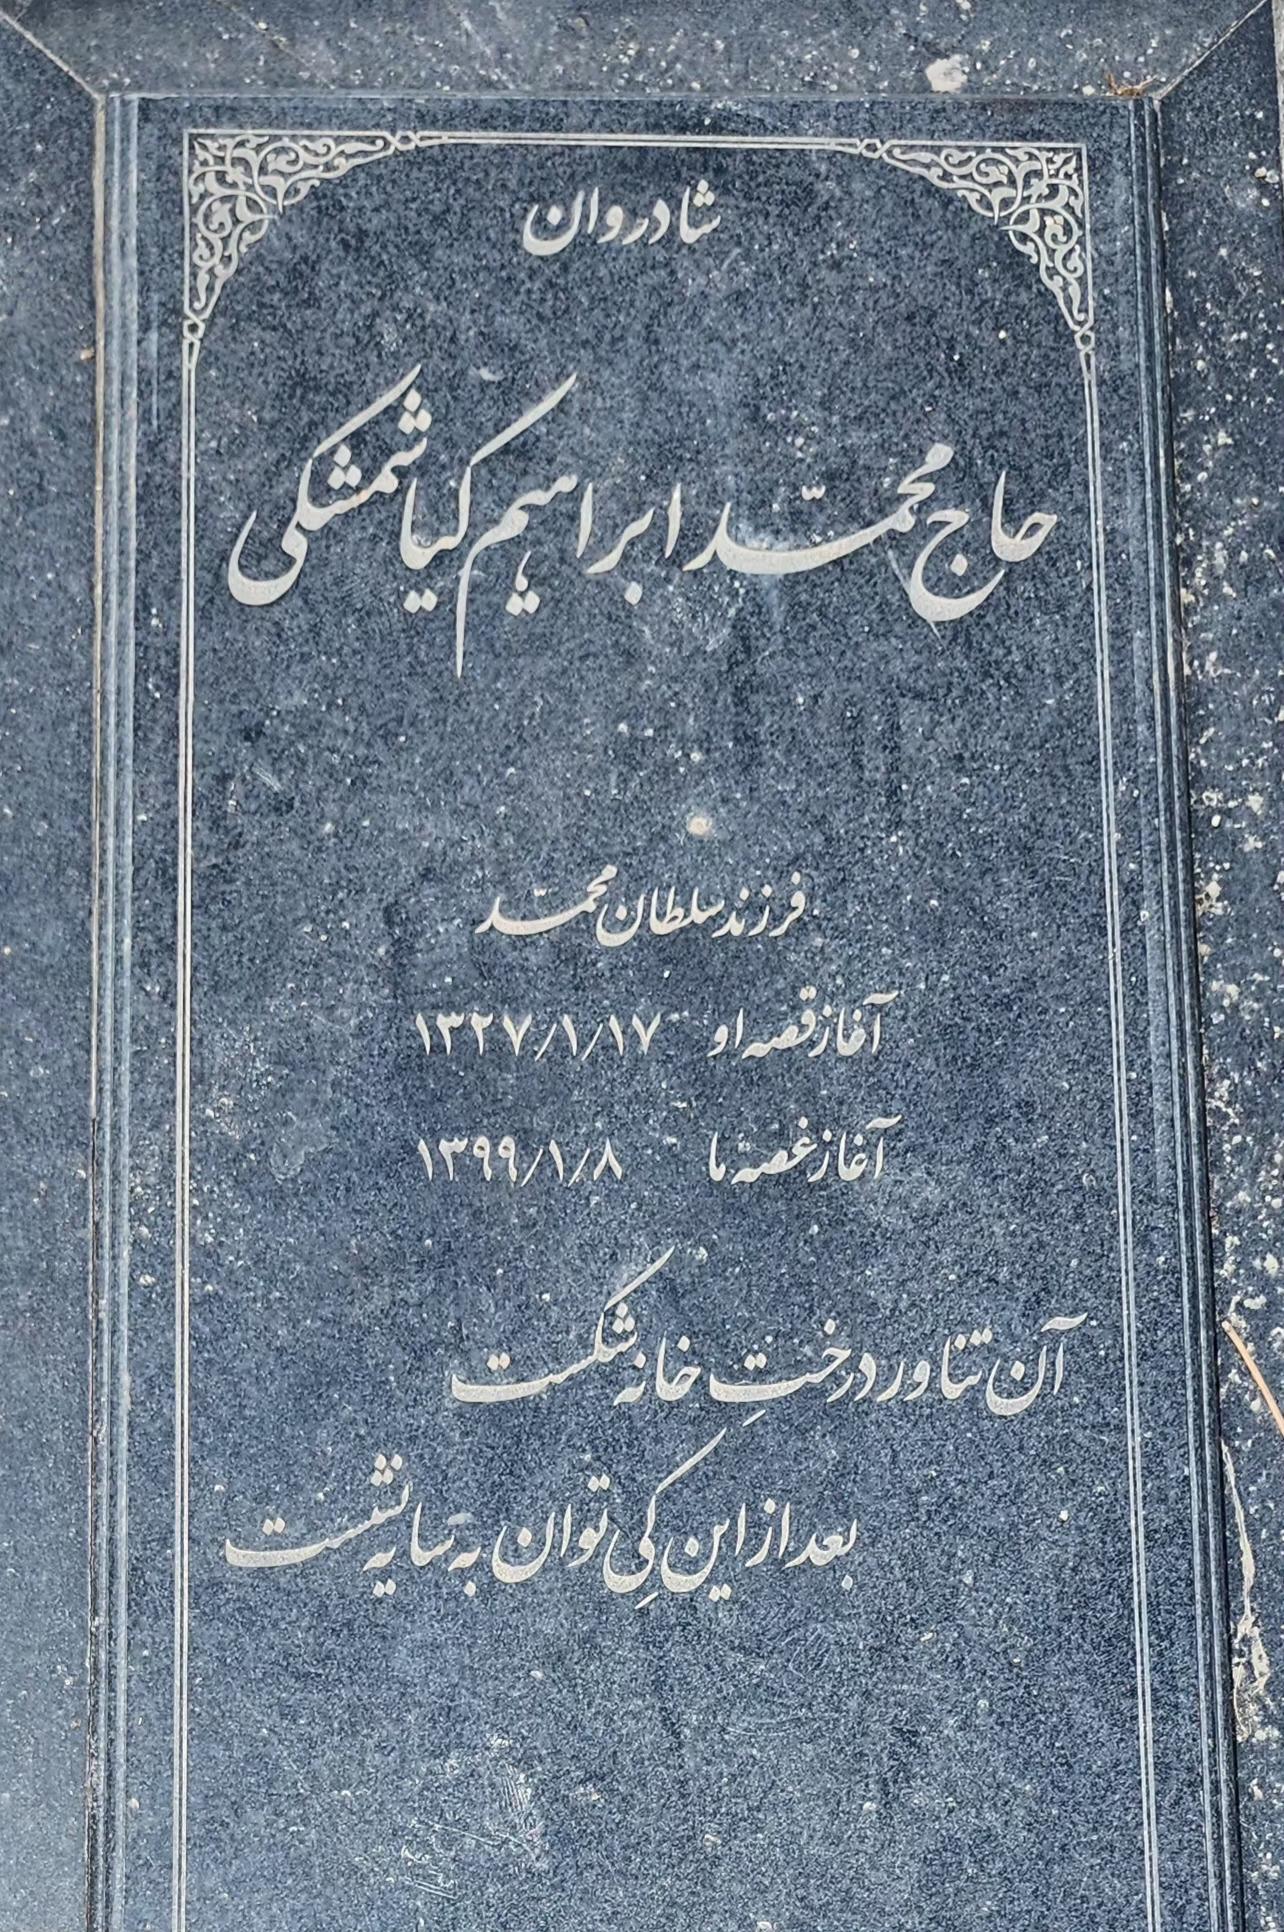 شادروان
حاج محمّد ابراهیم کیاشمشکی
فرزند سلطان محمّد
آغاز قصه او ۱۳۲۷/۱/۱۷
آغاز غصه ما ۱۳۹۹/۱/۸
آن تناور درختِ خانه شکست
بعد از این کِی توان به سایه نشست